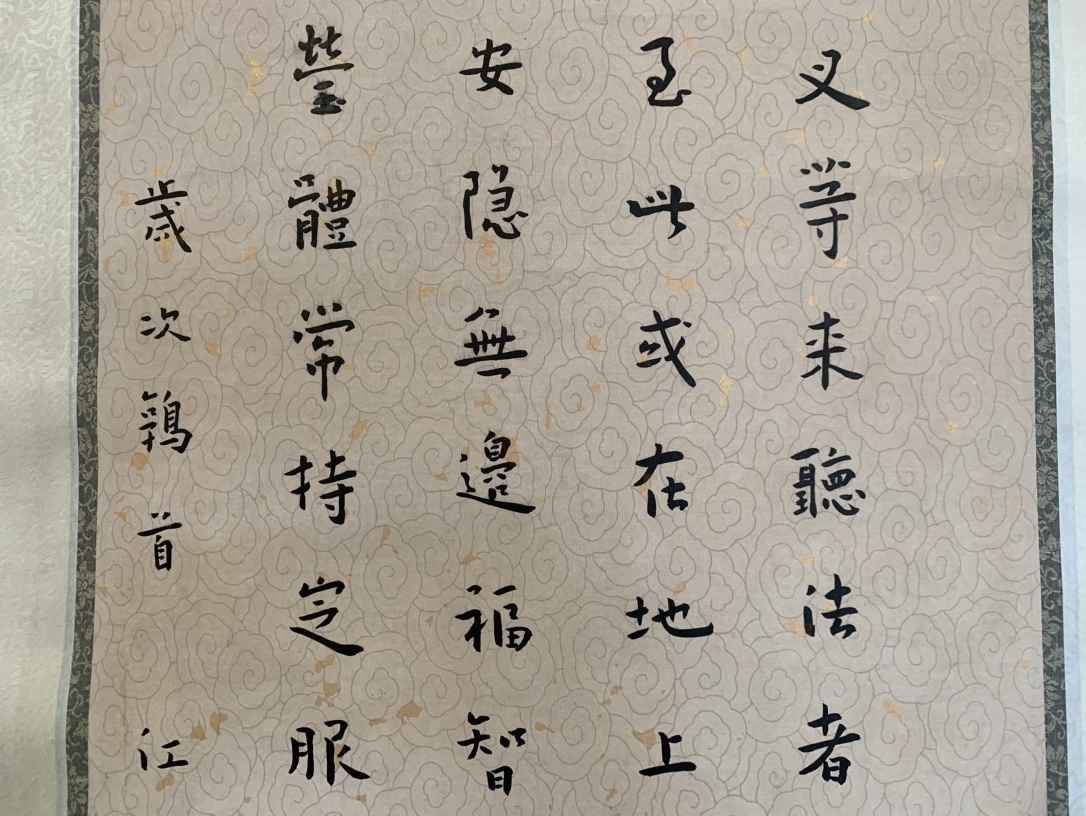 叉等来聽法者
至此或在地上
安隐無邊福智
瑩體常持定服
歲次鶉首 江